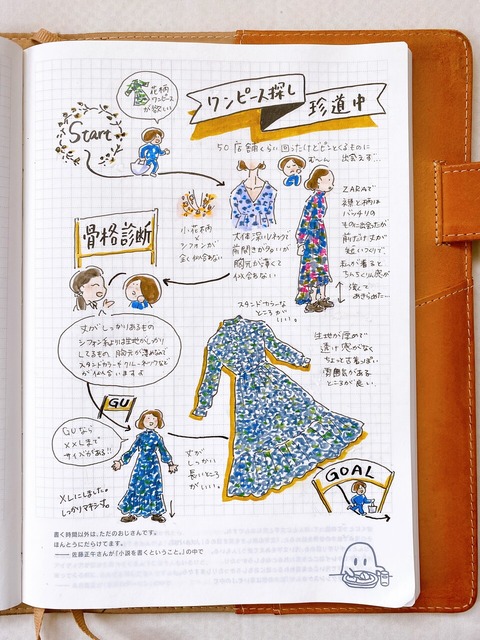 ワンピース探し
珍道中
花柄
ワンピース
が欲しい
Start
50店舗くらい回ったけどピンとくるものに
出会えず…
む〜ん
ZARAで
緑と柄は
バッチリの
ものに出会たが
前だけ丈が
短いつくりで、
私が着ると
ちんちくりん感が
強くて
あきらめた…
小花柄
シフォンが
全く似合わない
大体深いVネックで
前開きが多いが
胸元が薄くて
似合わない
骨格診断
丈がしっかりあるもの
シフォンよりは生地がしっかり
してるもの 胸元が薄めなので
スタンドカラーやクルーネックなど
が似合います
スタンドカラーな
ところが
いい。
生地が厚めで
透け感がなく
ちょっと古着っぽい
雰囲気がある
ところが良い。
GU
GUなら
XXLまで
サイズがある!!
XLにしました。
しっかりマキシ丈。
丈が
しっかり
長いところ
がいい。
GOAL
書く時間以外は、ただのおじさんです。
ほんとうにだらけてます。
―― 佐藤正午さんが『小説を書くということ。』の中で